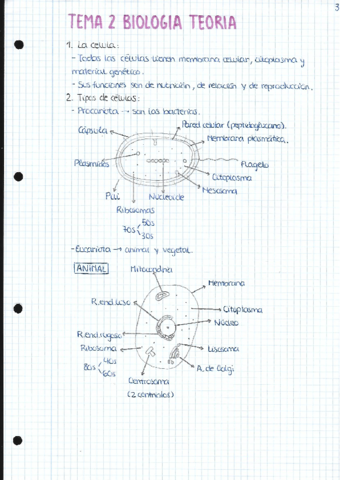 3
TEMA 2 BIOLOGIA TEORIA
1. La célula:
- Todas las células tienen membrana celular, citoplasma y
material genético.
- Sus funciones son de nutrición, de relación y de reproducción.
2. Tipos de células:
- Procariota → son las bacterias.
Cápsula
Pared celular (peptidoglucano).
Membrana plasmática.
Plásmidos
Flagelo
Citoplasma
Mesosoma
Pili
Nucleoide
Ribosomas
70s
50s
30s
- Eucariota → animal y vegetal.
ANIMAL
Mitocondria
Membrana
R.end.liso
Citoplasma
Núcleo
R.end.rugoso
Ribosoma
Lisosoma
80s
40s
60s
A. de Golgi
Centrosoma
(2 centriolos)